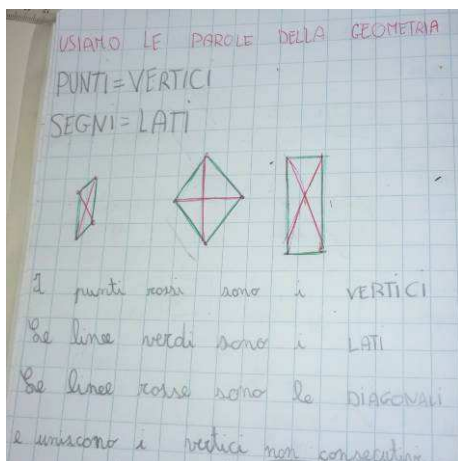 USIAMO LE PAROLE DELLA GEOMETRIA
PUNTI=VERTICI
SEGNI=LATI
I punti rossi sono i VERTICI
Le linee verdi sono i LATI
Le linee rosse sono le DIAGONALI
e uniscono i vertici non consecutivi